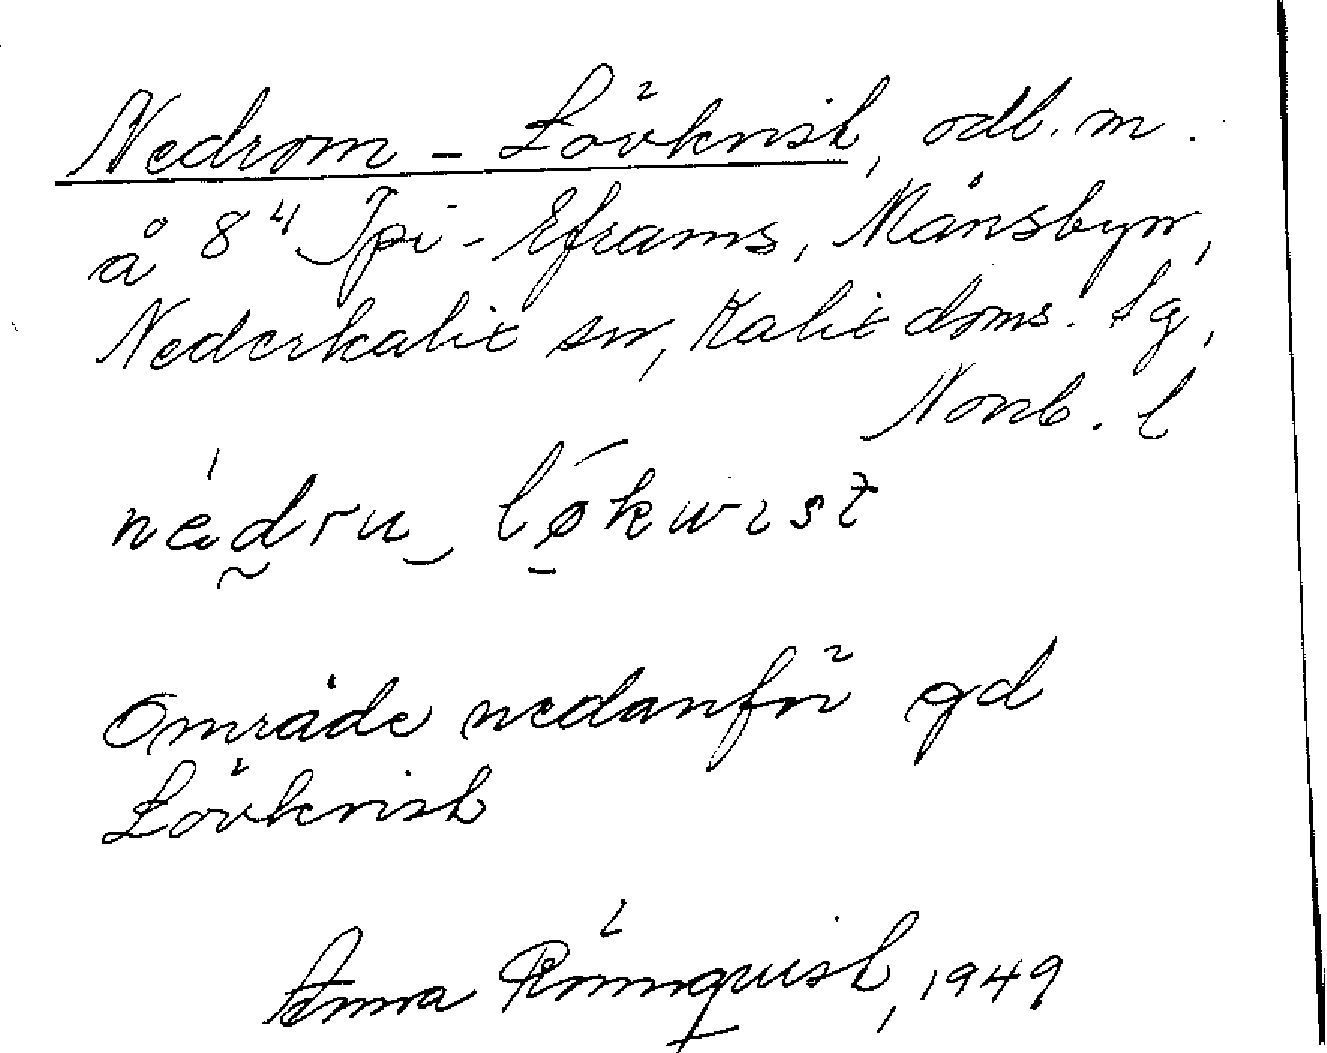 Nedrom - Lövkvist, odl. m.
å 8⁴ Jpi - Eframs, Månsbyn,
Nederkalix sn, Kalix doms. tg,
Norrb. l
nédru lø̄kwist
Område nedanför gd
Lövkvist
Anna Rönnquist, 1949